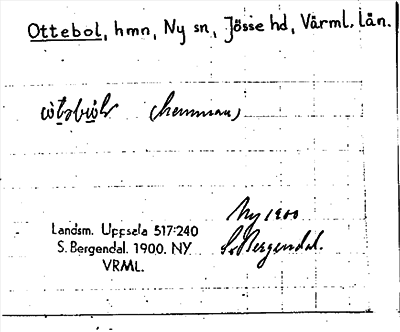 Ottebol, hmn, Ny sn, Jösse hd, Värml. län.
(hemman)
Ny 1900
S. Bergendal.
Landsm. Uppsala 517:240
S. Bergendal. 1900. NY
VRML.